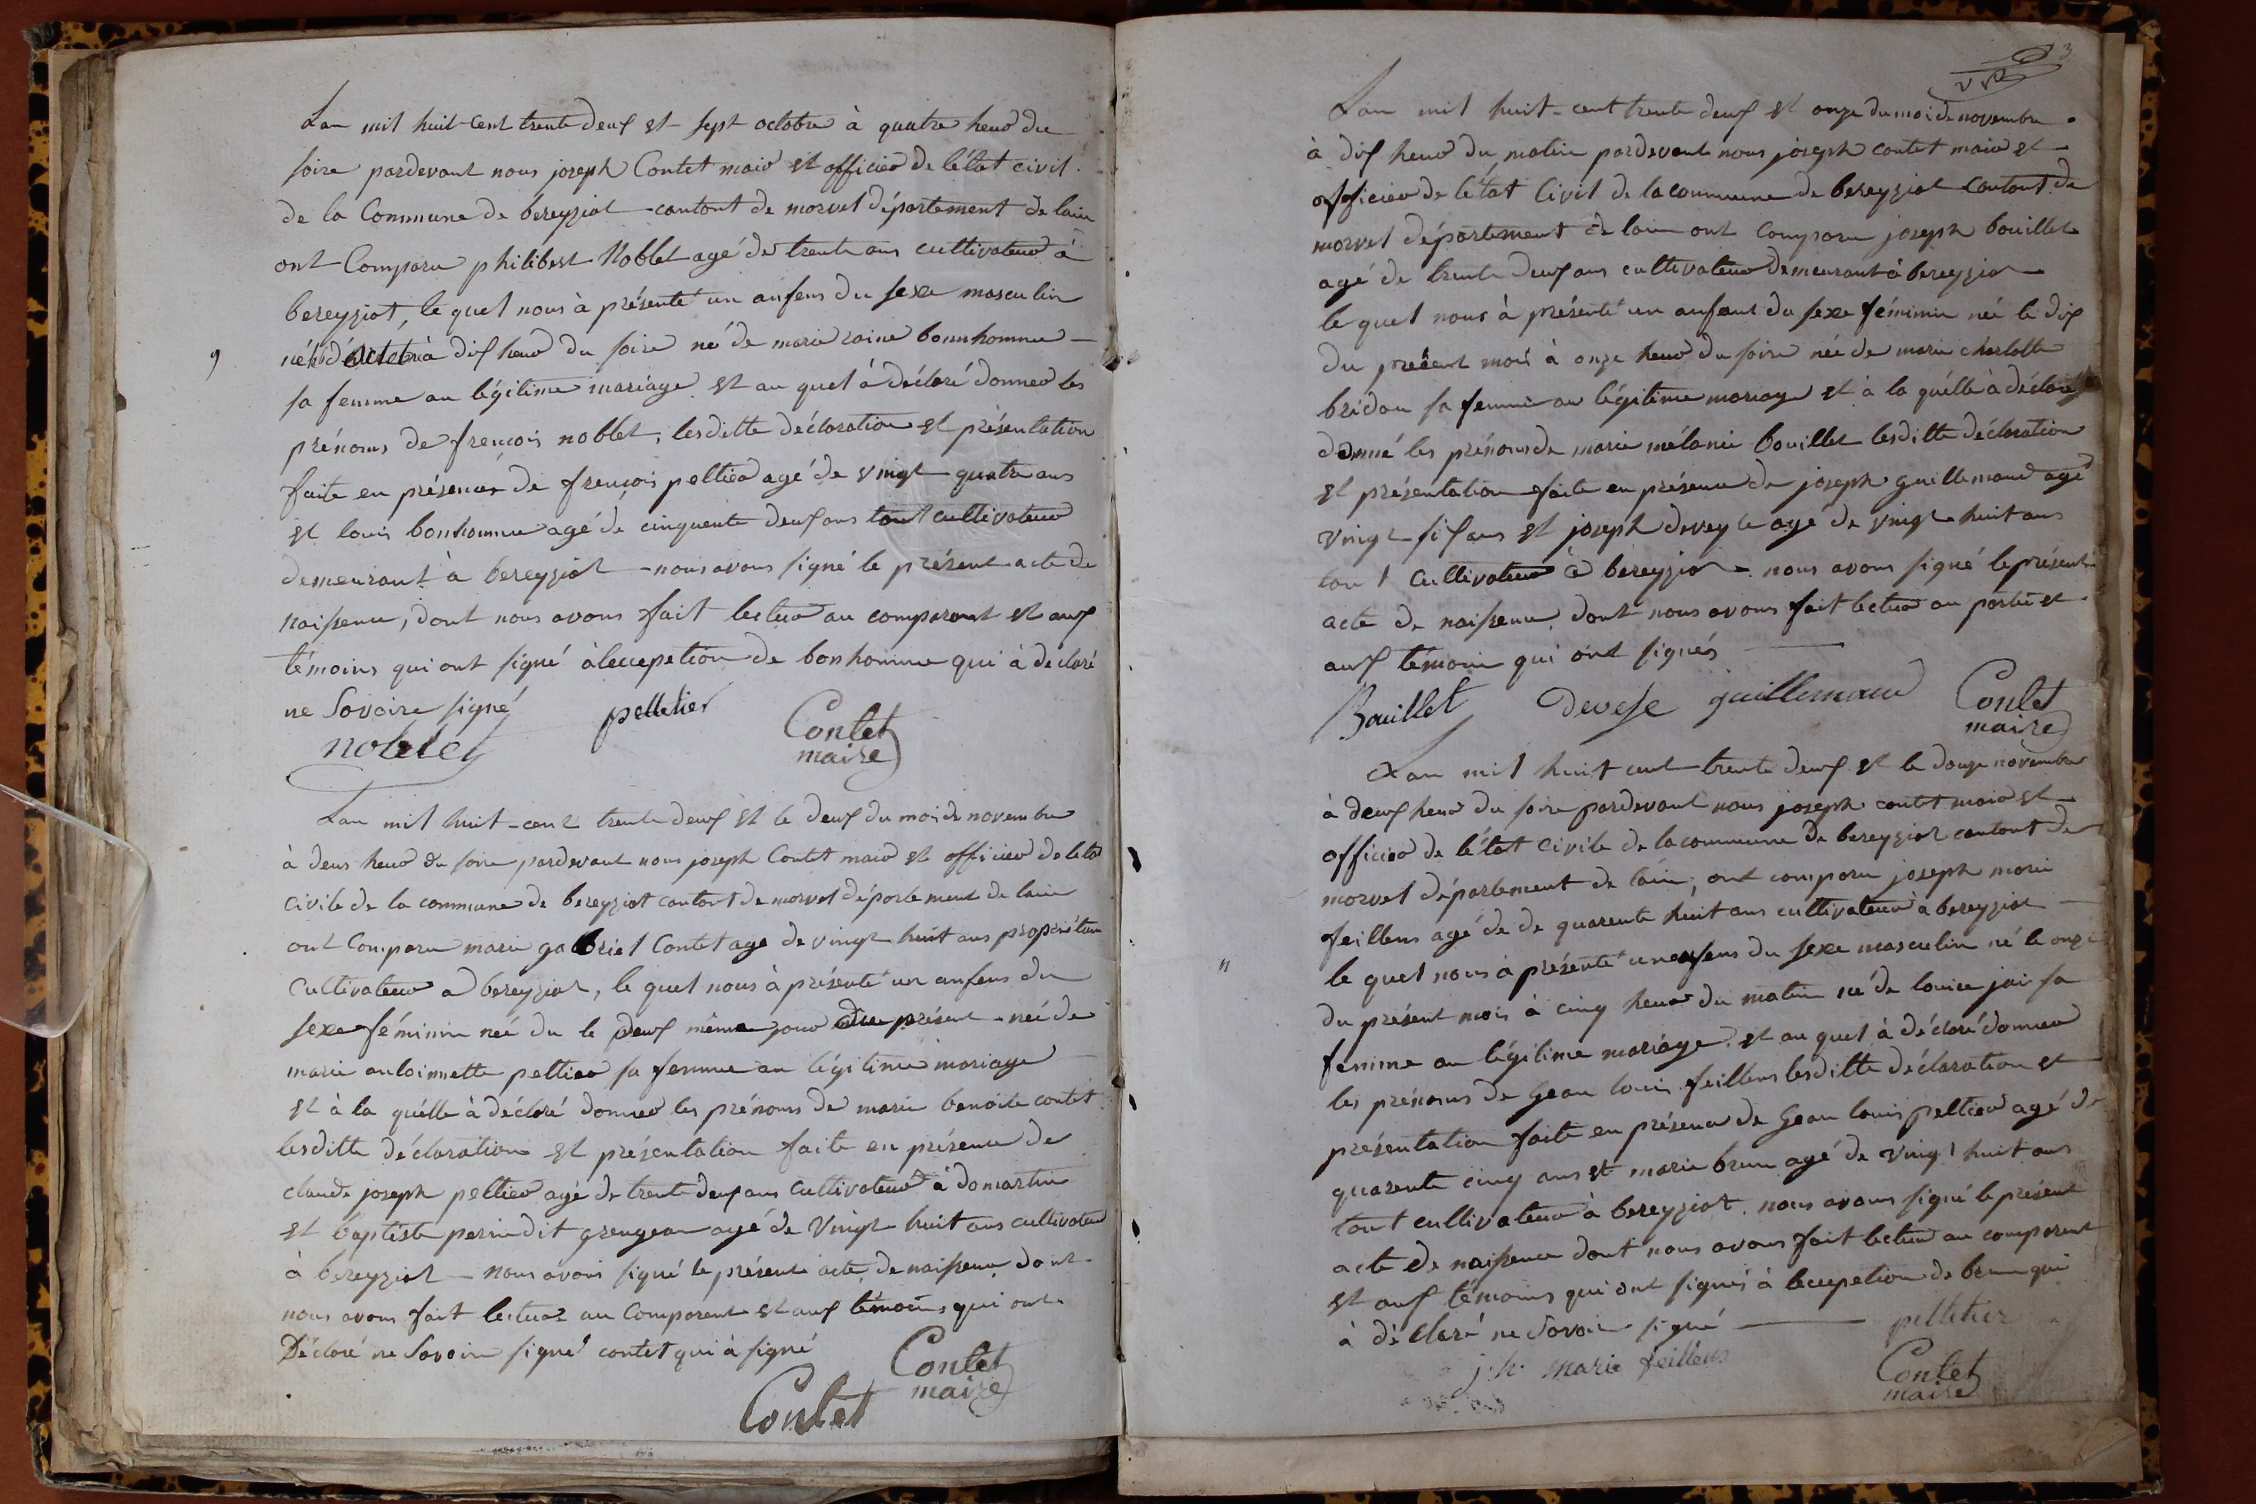 Lan mil huit-cent trente deux et sept octobre à quatre heur du
soire pardevant nous joseph Contet mair et officier de létat civil
de la Commune de bereyziat cantont de morvel département de lain
ont Comparu philibert Noblet agé de trente ans cultivateur à
bereyziat, le quel nous à présenté un anfens du sexe masculin
né d'octobre à dix heur du soire né de marie raine bonnhomme
sa femme an légitime mariage et au quel à déclaré donner les
prénoms de françois noblet, lesditte déclaration et présentation
faite en présence de françois peltier agé de vingt quatre ans
et louis bonhomme agé de cinquente deux ans tout cultivateur
demeurant à bereyziat nous avons signé le présent acte de
naissence, dont nous avons fait lectur au comparant et aux
témoins qui ont signé à leccepetion de bonhomme qui à déclaré
ne Savoire signé
noblet
pelletier
Contet
maire
9
Lan mil huit-cent trente deux et le deux du moi de novembre
à deus heur du soire pardevant nous joseph Contet mair et officier de léta
civile de la commune de bereyziat cantont de morvel département de lain
ont Comparu marie gabriel Contet age de vingt huit ans propriétair
cultivateur a bereyziat, le quel nous à présenté un anfens du
sexe féminin neé du le deux même jour du présent neé de
marie antoinnette peltier sa femme an légitime mariage
et à la quélle à déclaré donner les prénoms de marie benoite contet
lesditte déclaration et présentation faite en présence de
claude joseph peltier agé de trente deux ans cultivateur à domartin
et baptiste perrin dit grengean agé de vingt huit ans cultivateur
à bereyziat nous avons signé le présent acte de naissence dont
nous avons fait lectur au Comparent et aux témoins qui ont
Déclaré ne Savoire signé contet qui à signé
Contet
maire
Contet
3
Lan mil huit-cent trente deux et onze du moi de novembre
à dix heur du matin pardevant nous joseph contet mair et
officier de létat Civil de la commune de bereyziat cantont de
morvel département de lain ont comparu joseph bouillet
agé de trente deux ans cultivateur demeurant à bereyziat
le quel nous à présenté un anfant du sexe féminin neé le dix
du présent mois à onze heur du soire neé de marie charlotte
bridon sa femme an légitime mariage et à la quélle à déclaré
donné les prénoms de marie mélanie bouillet lesditte déclaration
et présentation faite en présence de joseph guillemaud agé
vingt six ans et joseph deveyle agé de vingt huit ans
tout cultivateur à bereyziat nous avons signé le présent
acte de naissence dont nous avons fait lectur au partie et
aux témoin qui ont signés
Bouillet
devese
guillemaud
Contet
maire
Lan mil huit cent trente deux et le douze novembre
à deux heur du soire pardevant nous joseph contet mair et
officier de létat civile de la commune de bereyziat cantont de
morvel département de lain, ont comparu joseph marie
feillens agé de de quarente huit ans cultivateur à bereyziat
le quel nous à présenté un anfens du sexe masculin né le onze
du présent mois à cinq heur du matin né de louise jai sa
femme an légitime mariage et au quel à déclaré donner
les prénoms de Gean louis feillens lesditte déclaration et
présentation faite en présence de Gean louis peltier agé de
quarente cinq ans et marie brun agé de vingt huit ans
tout cultivateur à bereyziat nous avons signé le présent
acte de naissence dont nous avons fait lectur au comparent
et aux témoins qui ont signés à leccepetion de brun qui
à déclaré ne Savoir signé
pelletier
j.h. marie feillens
Contet
maire
11